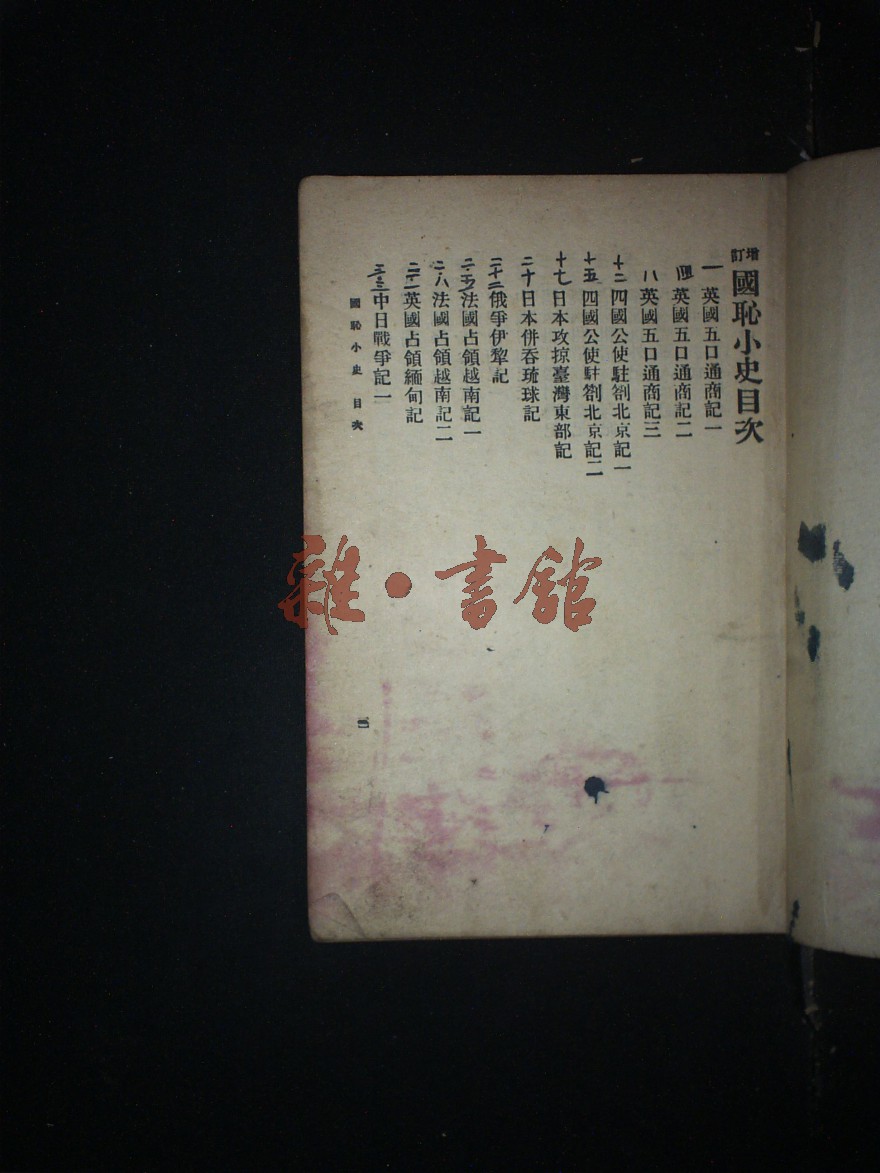 增訂國恥小史目次
一 英國五口通商記一
四 英國五口通商記二
八 英國五口通商記三
十二 四國公使駐劄北京記一
十五 四國公使駐劄北京記二
十七 日本攻掠臺灣東部記
二十 日本併吞琉球記
二十二 俄爭伊犂記
二・五 法國占領越南記一
二・八 法國占領越南記二
英國占領緬甸記
三・三 中日戰爭記一
國恥小史 目次
一
雜・書館